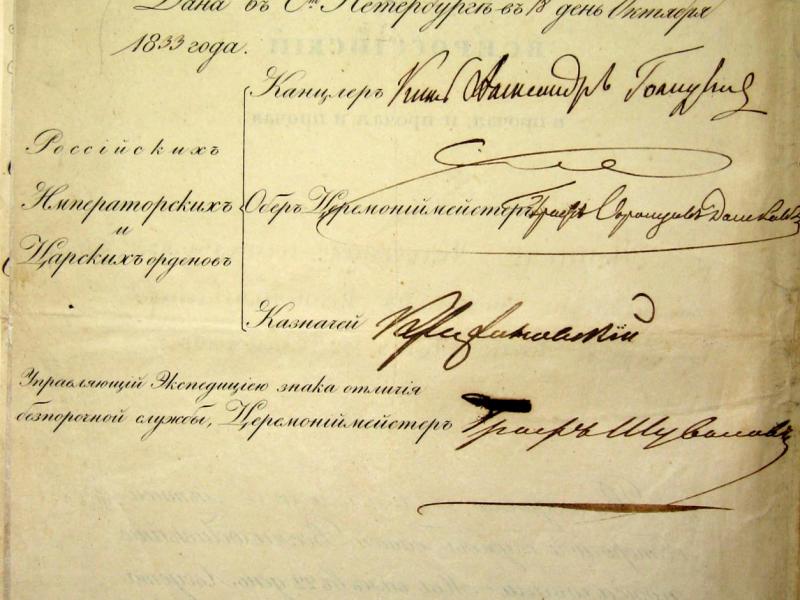 Дана въ С^(нкт) Петербургѣ въ 18 день Октября
1833 года.
Россійскихъ
Императорскихъ
и
Царскихъ орденовъ
Канцлеръ Князь Александръ Голицынъ
Оберъ Церемоніймейстеръ Графъ Воронцовъ Дашковъ
Казначей
Управляющій Экспедиціею знака отличія
безпорочной службы, Церемоніймейстеръ Графъ Шуваловъ